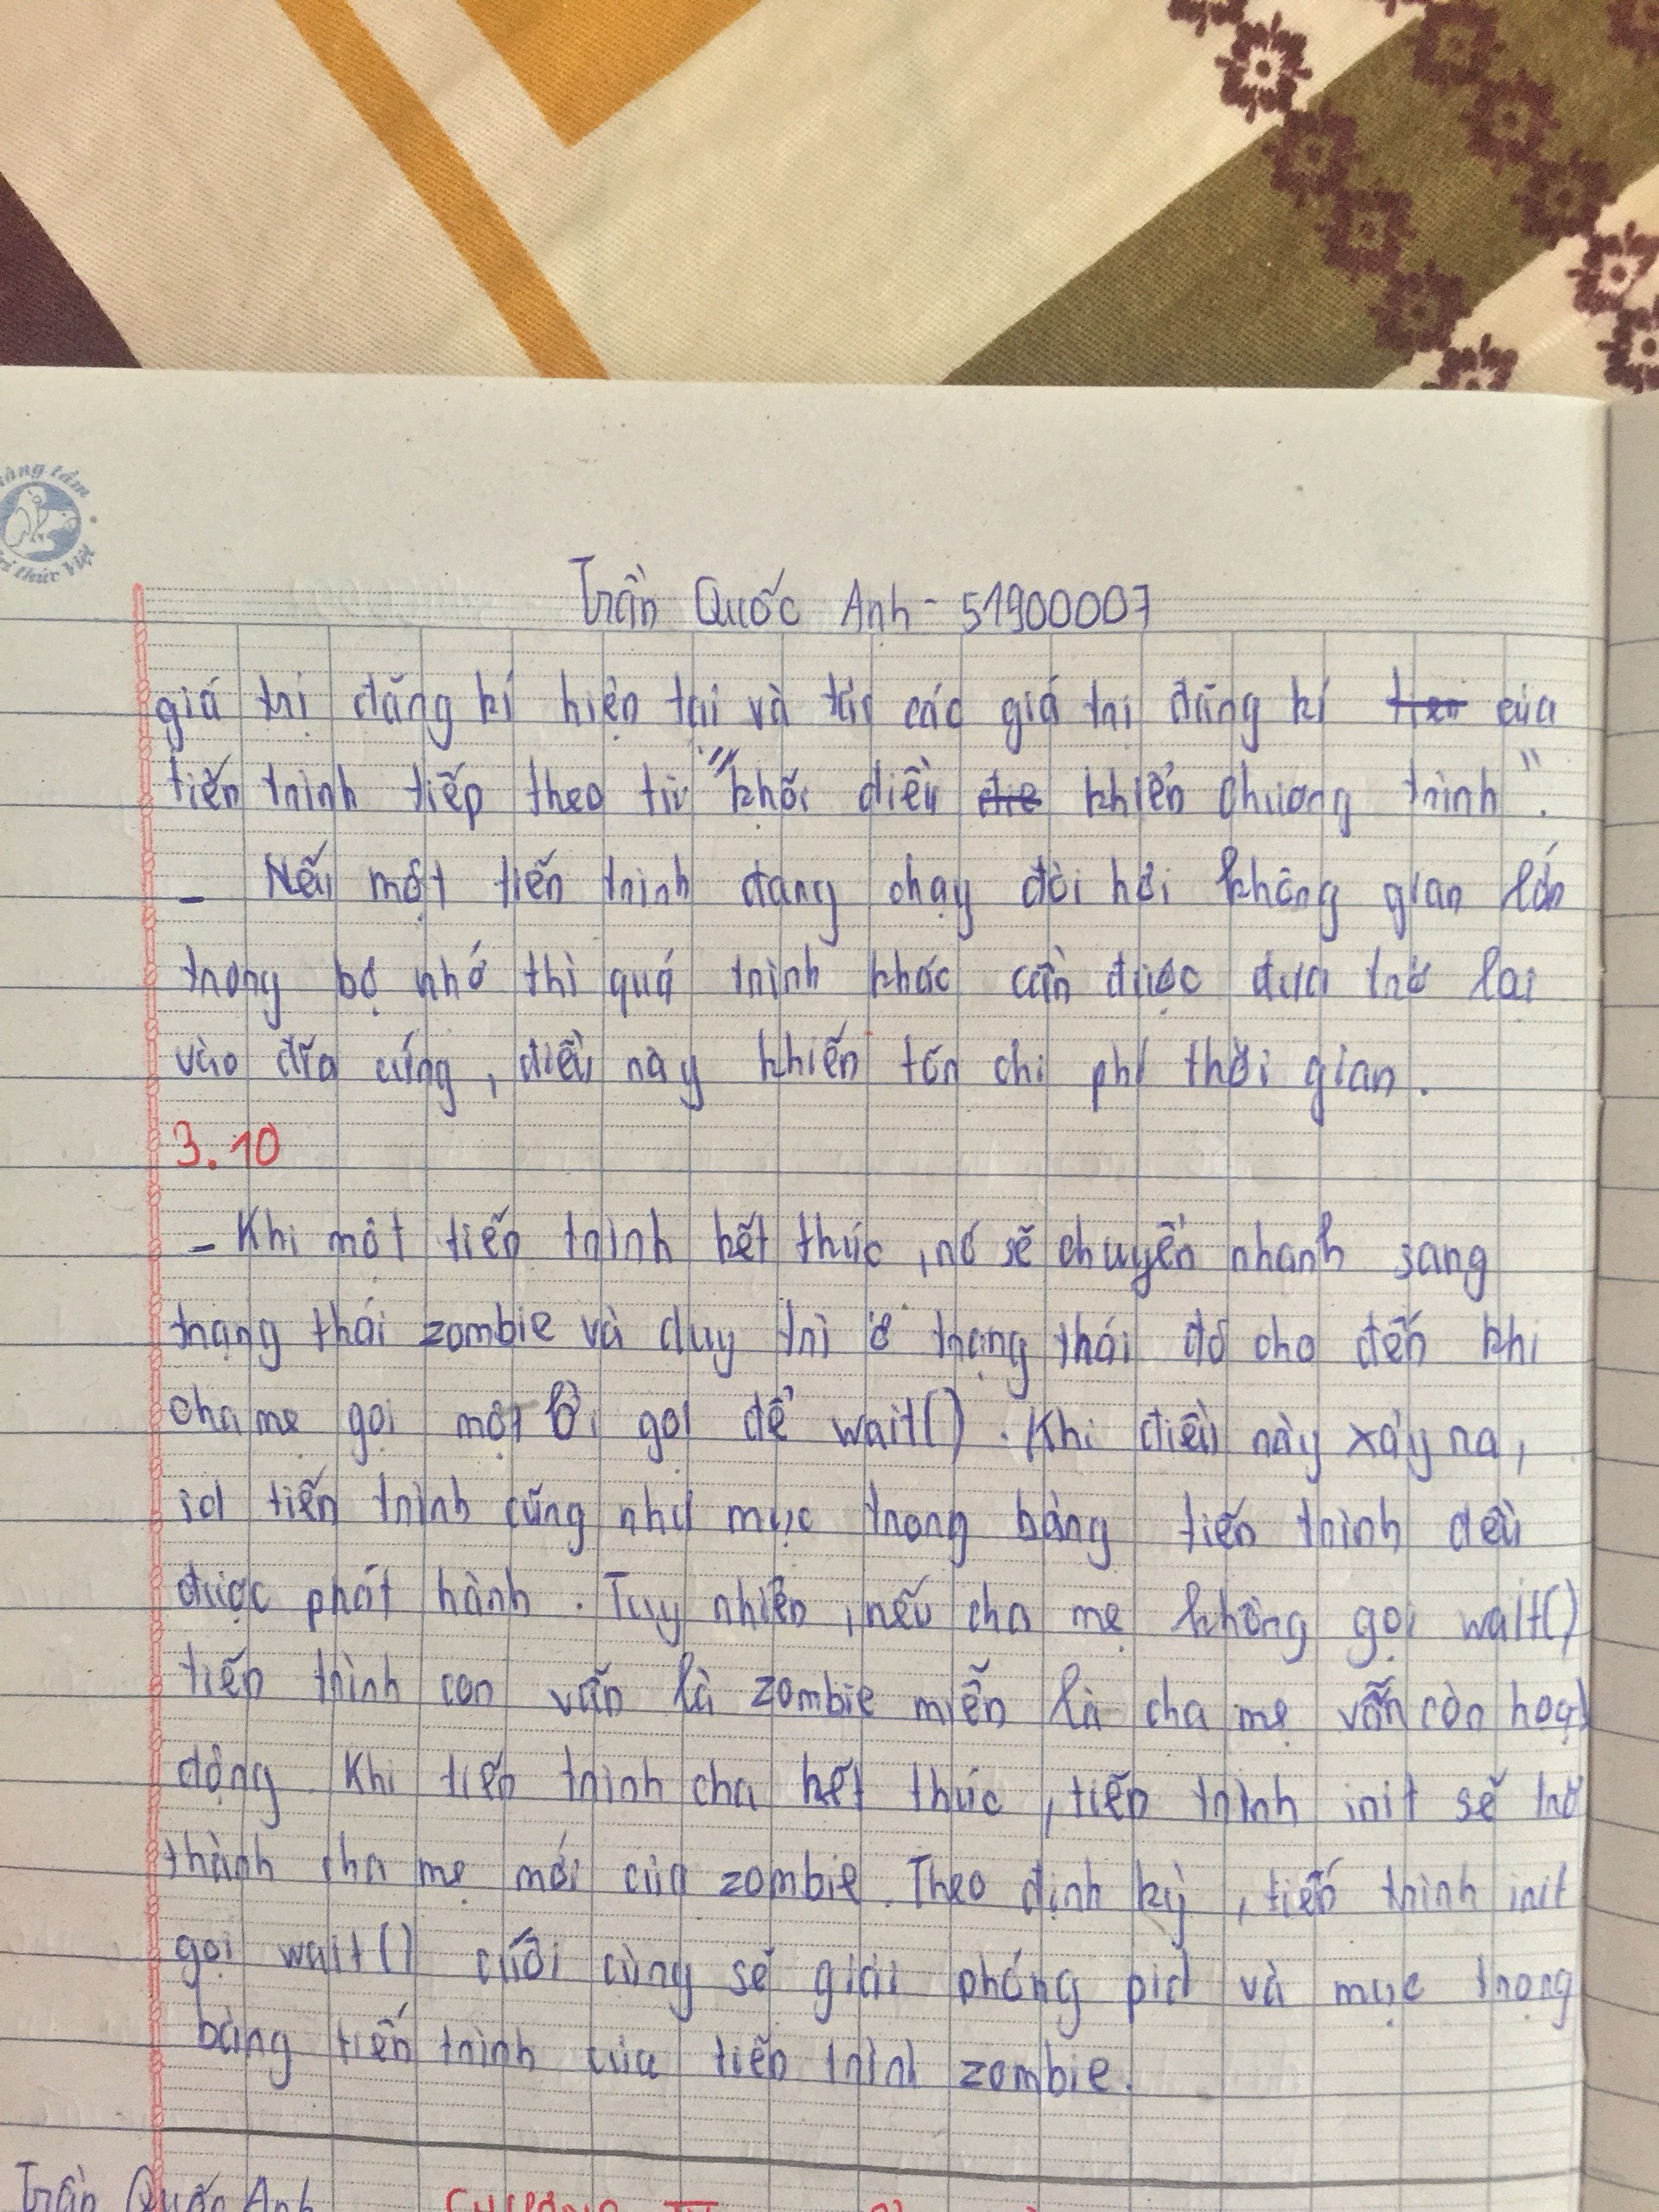 Trần Quốc Anh - 51900007
giá trị đăng kí hiện tại và tải các giá trị đăng kí tien của
tiến trình tiếp theo từ "khối điều đie khiển chương trình".
- Nếu một tiến trình đang chạy đòi hỏi không gian lớn
trong bộ nhớ thì quá trình khác cần được đưa trở lại
vào đĩa cứng, điều này khiến tốn chi phí thời gian.
3.10
- Khi một tiến trình kết thúc, nó sẽ chuyển nhanh sang
trạng thái zombie và duy trì ở trạng thái đó cho đến khi
cha mẹ gọi một lời gọi để wait(). Khi điều này xảy ra,
id tiến trình cũng như mục trong bảng tiến trình đều
được phát hành. Tuy nhiên, nếu cha mẹ không gọi wait()
tiến trình con vẫn là zombie miễn là cha mẹ vẫn còn hoạt
động. Khi tiến trình cha kết thúc, tiến trình init sẽ trở
thành cha mẹ mới của zombie. Theo định kỳ, tiến trình init
gọi wait() cuối cùng sẽ giải phóng pid và mục trong
bảng tiến trình của tiến trình zombie.
Trần Quốc Anh